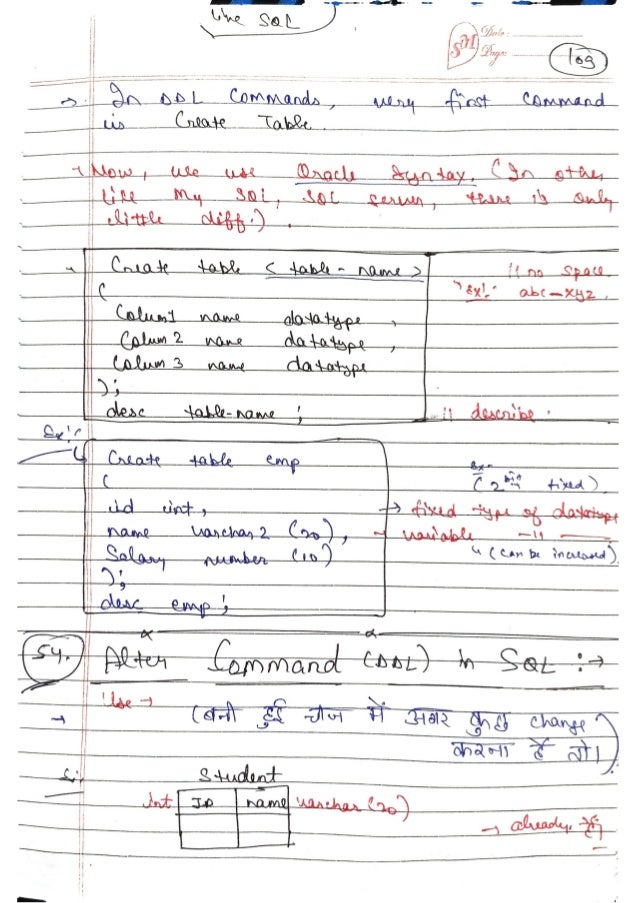 Live SQL
SM Date:
Page: 103
→ In DDL Commands, very first command
is Create Table.
→ Now, we use Oracle Syntax. (In other
like My SQL, SQL server, there is only
little diff.)
Create table < table-name > // no space
( Ex:- abc-xyz
Colum1 name datatype ,
Colum 2 name datatype ,
Colum 3 name datatype
);
desc table-name ; // describe.
Ex:-
Create table emp
( Ex:- (2 fixed)
id int, → fixed type of datatype
name varchar2 (20), → variable —11—
Salary number (10) (can be increased)
);
desc emp ;
54. Alter Command (DDL) in SQL :→
Use →
→ (बनी हुई चीज में अगर कुछ change
करना है तो।)
Student
int ID name varchar (20)
→ already है